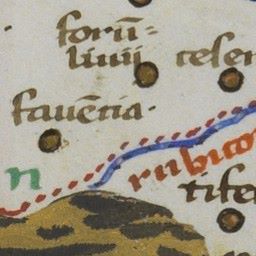 forū=
liuij
cesen
fauēcia·
n
rubico
tife